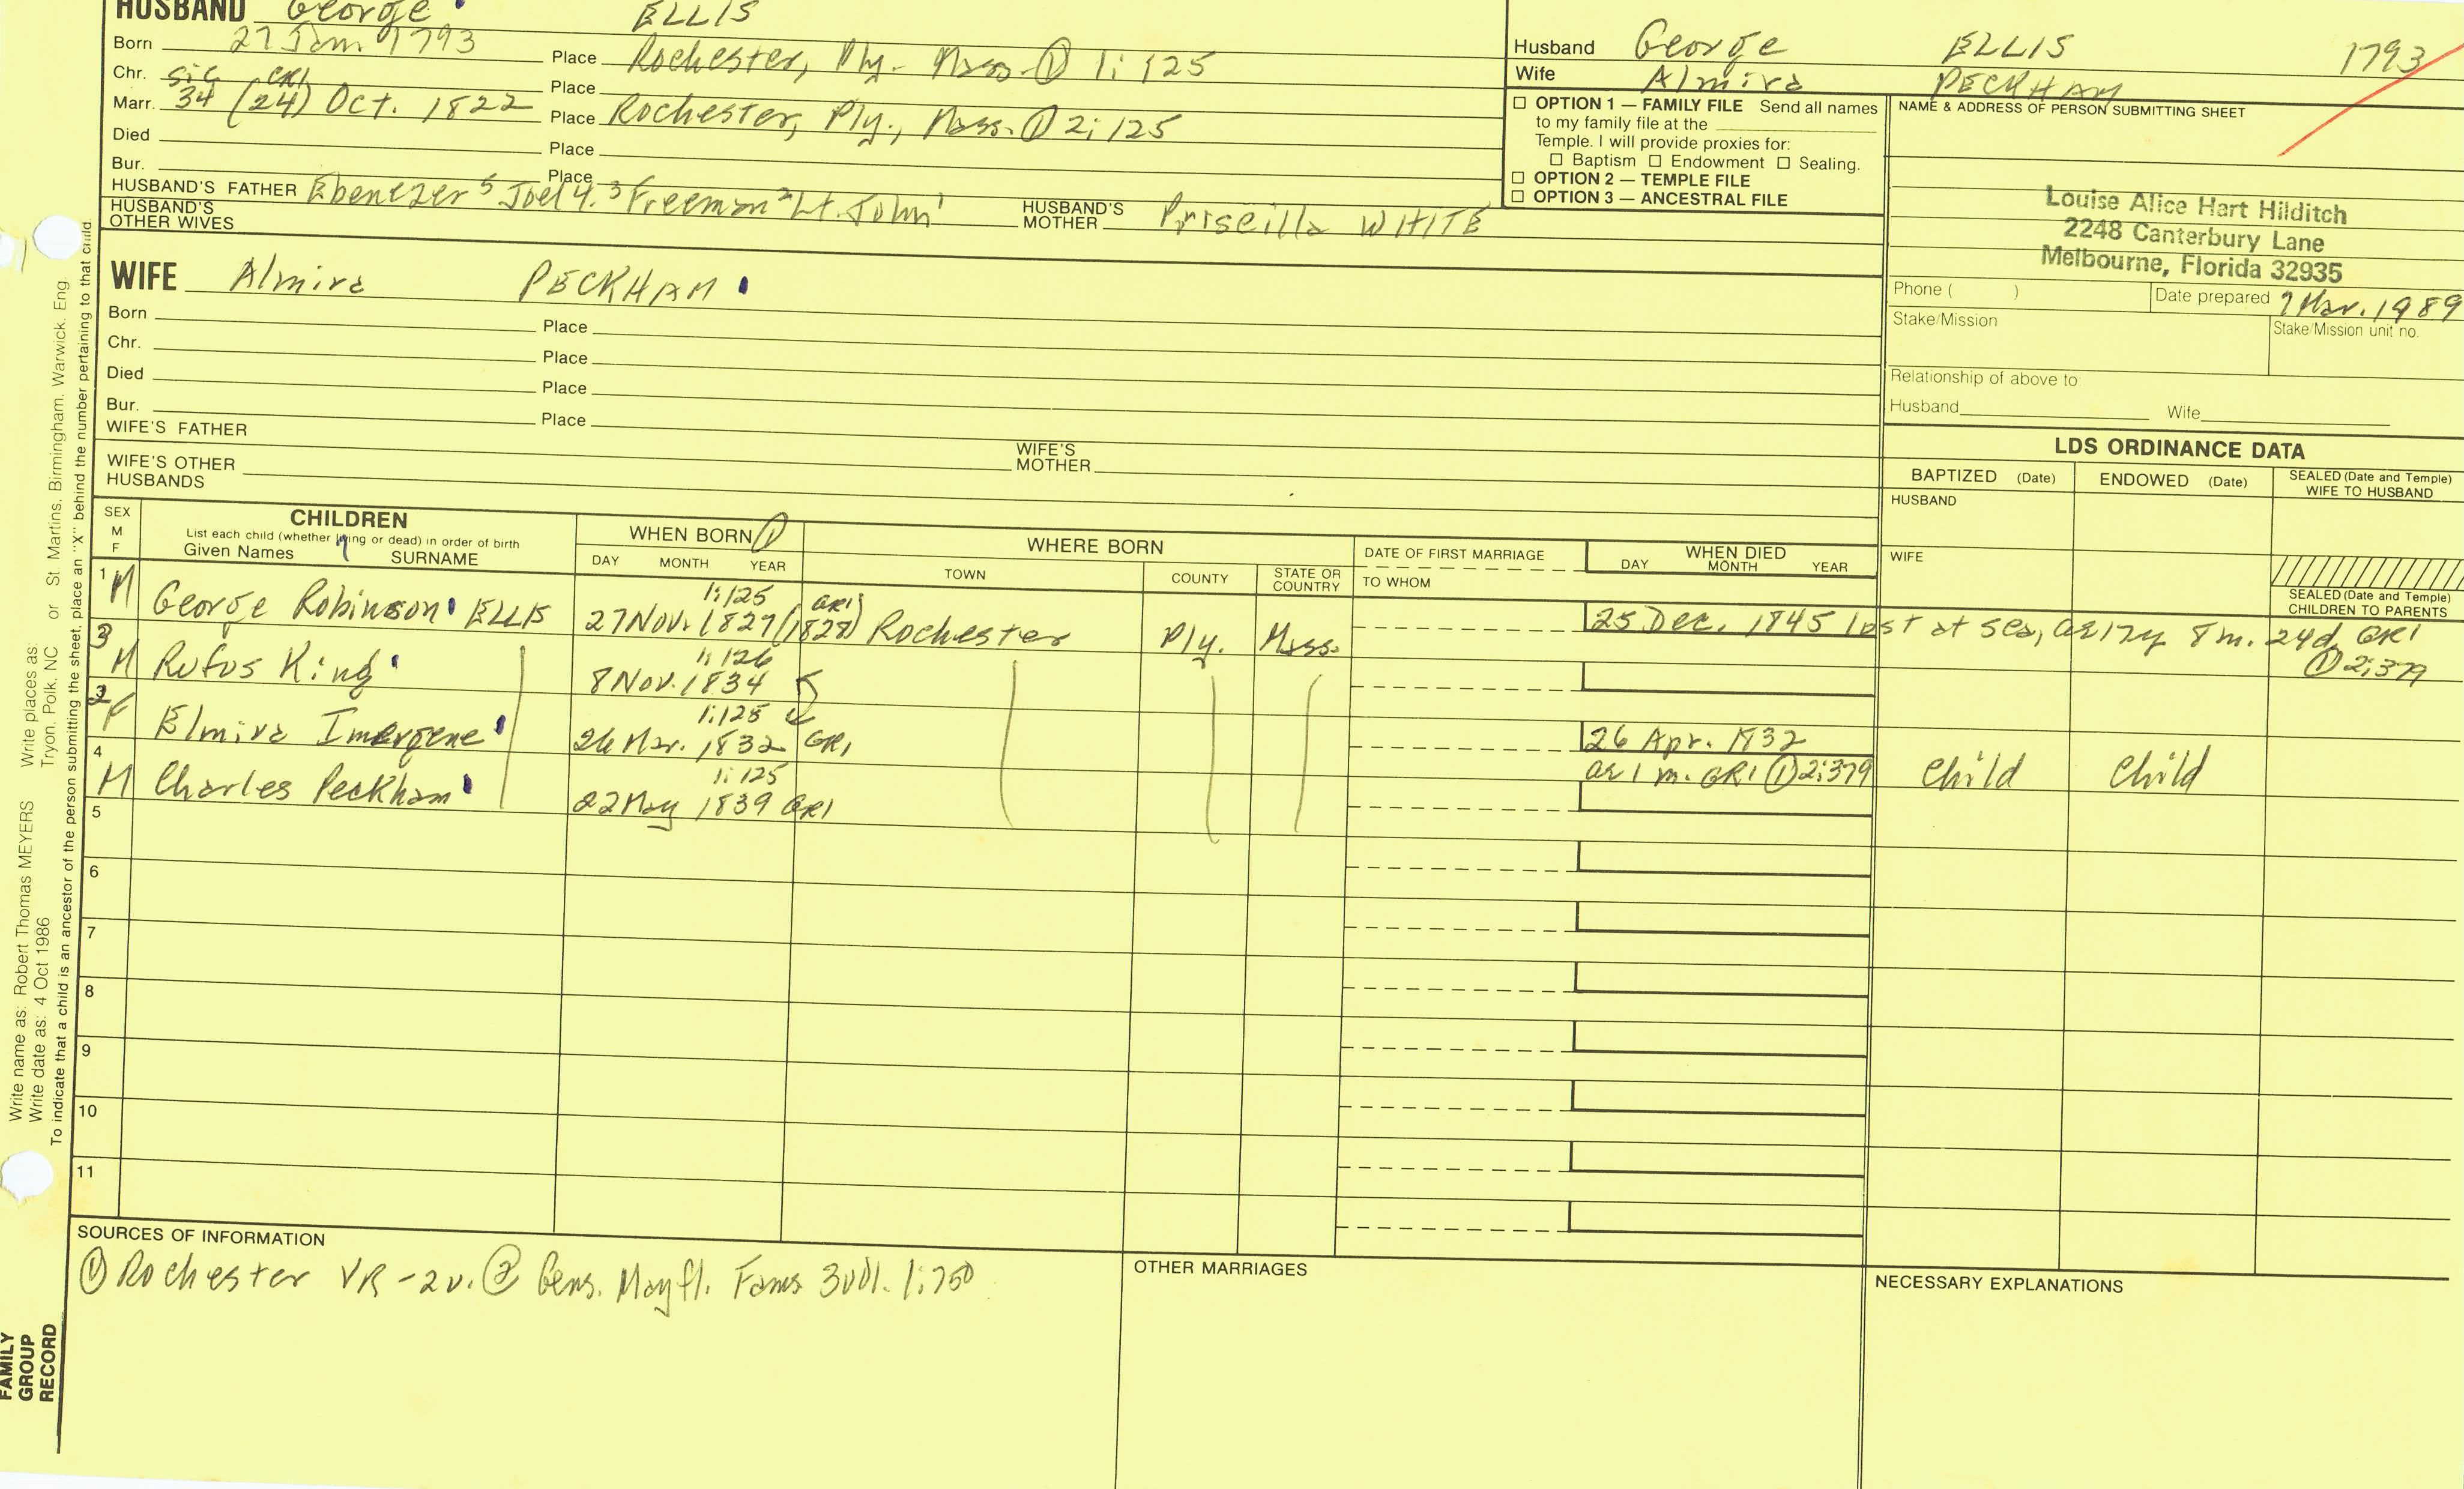 HUSBAND George ELLIS
Born 27 Jan. 1793 Place Rochester, Ply. Mass. ① 1:125
Chr. Place
sic GR1
Marr. 34 (24) Oct. 1822 Place Rochester, Ply., Mass. ① 2:125
Died Place
Bur. Place
HUSBAND'S FATHER Ebenezer 5 Joel 4. 3 Freeman 2 Lt. John 1 HUSBAND'S MOTHER Priscilla WHITE
HUSBAND'S OTHER WIVES
Husband George ELLIS 1793
Wife Almira PECKHAM
☐ OPTION 1 — FAMILY FILE Send all names
to my family file at the
Temple. I will provide proxies for:
☐ Baptism ☐ Endowment ☐ Sealing.
☐ OPTION 2 — TEMPLE FILE
☐ OPTION 3 — ANCESTRAL FILE
NAME & ADDRESS OF PERSON SUBMITTING SHEET
Louise Alice Hart Hilditch
2248 Canterbury Lane
Melbourne, Florida 32935
Phone ( ) Date prepared 7 Mar. 1989
Stake/Mission Stake/Mission unit no.
Relationship of above to
Husband Wife
WIFE Almira PECKHAM
Born Place
Chr. Place
Died Place
Bur. Place
WIFE'S FATHER WIFE'S MOTHER
WIFE'S OTHER HUSBANDS
LDS ORDINANCE DATA
BAPTIZED (Date) ENDOWED (Date) SEALED (Date and Temple) WIFE TO HUSBAND
HUSBAND
WIFE
SEALED (Date and Temple) CHILDREN TO PARENTS
SEX M F
CHILDREN
List each child (whether living or dead) in order of birth
Given Names SURNAME
WHEN BORN ①
DAY MONTH YEAR
WHERE BORN
TOWN COUNTY STATE OR COUNTRY
DATE OF FIRST MARRIAGE
TO WHOM
WHEN DIED
DAY MONTH YEAR
1:125 GR1
1 M George Robinson ELLIS 27 Nov. 1827 (1828) Rochester Ply. Mass. 25 Dec. 1845 lost at sea, ae 17y 8 m. 24d. GR1
① 2:379
1:126
3 M Rufus King 8 Nov. 1834
1:125
2 F Elmira Imergene 26 Mar. 1832 GR1 26 Apr. 1832
ae 1 m. GR1 ① 2:379 Child Child
1:125
4 M Charles Peckham 22 May 1839 GR1
5
6
7
8
9
10
11
SOURCES OF INFORMATION
① Rochester VR - 2v. ② Gens. Mayfl. Fams 3vol. 1:750
OTHER MARRIAGES
NECESSARY EXPLANATIONS
Write name as: Robert Thomas MEYERS Write places as:
Write date as: 4 Oct 1986 Tryon, Polk, NC or St. Martins, Birmingham, Warwick, Eng.
To indicate that a child is an ancestor of the person submitting the sheet, place an "X" behind the number pertaining to that child.
FAMILY
GROUP
RECORD